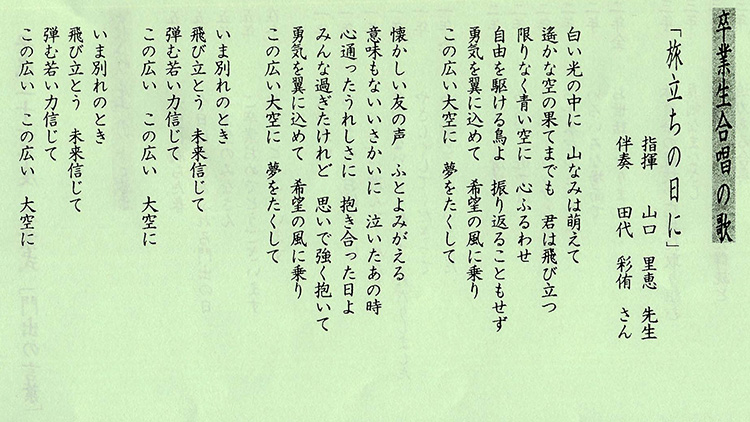 卒業生合唱の歌
「旅立ちの日に」
指揮　山口　里恵　先生
伴奏　田代　彩侑　さん
白い光の中に　山なみは萌えて
遙かな空の果てまでも　君は飛び立つ
限りなく青い空に　心ふるわせ
自由を駆ける鳥よ　振り返ることもせず
勇気を翼に込めて　希望の風に乗り
この広い大空に　夢をたくして
懐かしい友の声　ふとよみがえる
意味もないいさかいに　泣いたあの時
心通ったうれしさに　抱き合った日よ
みんな過ぎたけれど　思いで強く抱いて
勇気を翼に込めて　希望の風に乗り
この広い大空に　夢をたくして
いま別れのとき
飛び立とう　未来信じて
弾む若い力信じて
この広い　この広い　大空に
いま別れのとき
飛び立とう　未来信じて
弾む若い力信じて
この広い　この広い　大空に